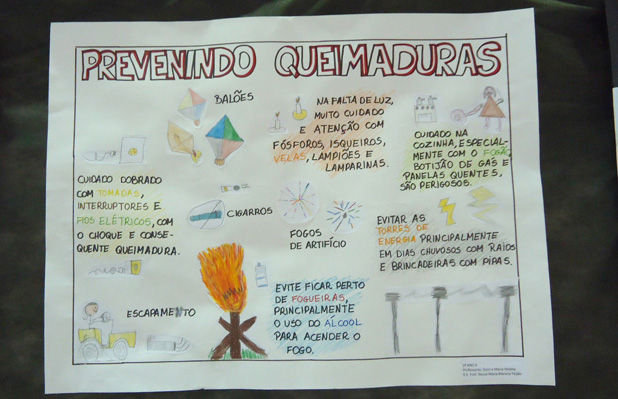 PREVENINDO QUEIMADURAS
BALÕES
NA FALTA DE LUZ,
MUITO CUIDADO
E ATENÇÃO COM
FÓSFOROS, ISQUEIROS,
VELAS, LAMPIÕES E
LAMPARINAS.
CUIDADO NA
COZINHA, ESPECIAL-
MENTE COM O FOGÃO,
BOTIJÃO DE GÁS E
PANELAS QUENTES,
SÃO PERIGOSOS.
CUIDADO DOBRADO
COM TOMADAS,
INTERRUPTORES E
FIOS ELÉTRICOS, COM
O CHOQUE E CONSE-
QUENTE QUEIMADURA.
CIGARROS
FOGOS
DE ARTIFÍCIO
EVITAR AS
TORRES DE
ENERGIA PRINCIPALMENTE
EM DIAS CHUVOSOS COM RAIOS
E BRINCADEIRAS COM PIPAS.
ESCAPAMENTO
EVITE FICAR PERTO
DE FOGUEIRAS,
PRINCIPALMENTE
O USO DO ÁLCOOL
PARA ACENDER O
FOGO.